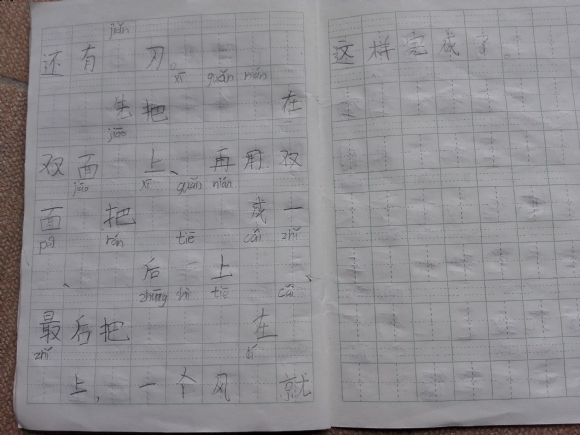 jiǎn
还有 刀。
xī guǎn nián
先把 在
jiāo
双面 上、再用双
jiāo xī guǎn nián
面 把 成一
pái rán tiē cǎi zhǐ
、 后 上 、
zhuāng shì tiē cǎi
最后把 在
zhǐ
上，一个风 就
这样完成了